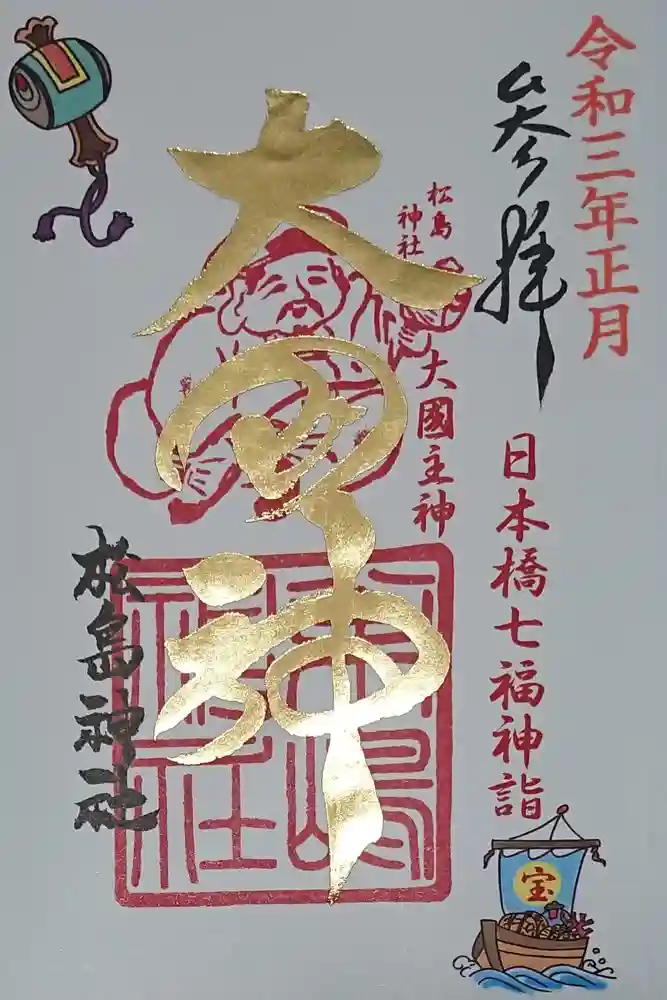 令和三年正月
参拝
日本橋七福神詣
松島
神社
大國主神
松島神社
松嶋
神社
宝